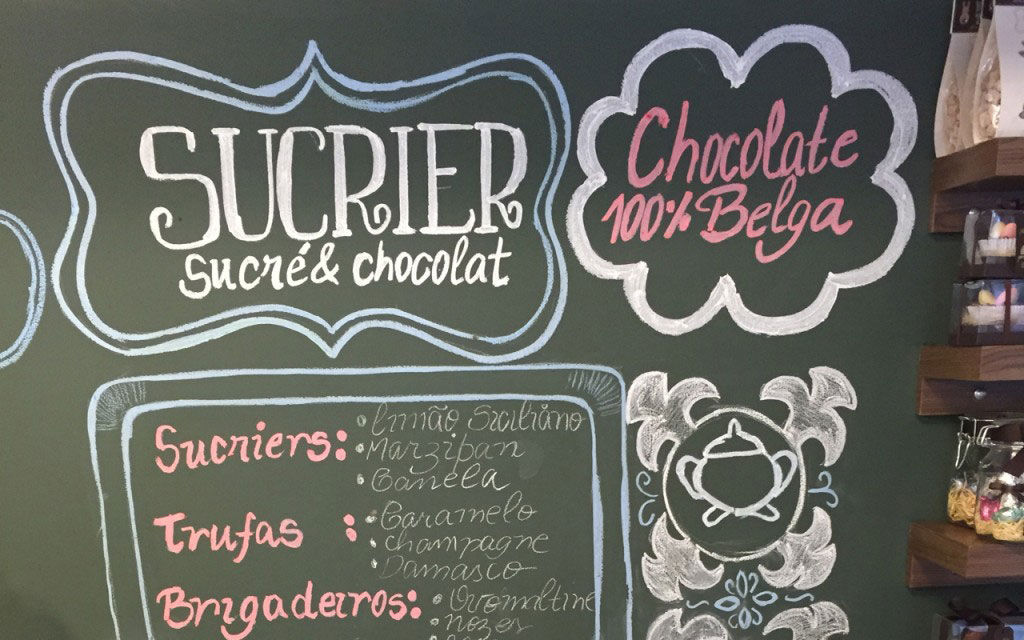 SUCRIER
sucré & chocolat
Chocolate
100% Belga
Sucriers: • Limão Siciliano
• Marzipan
• Canela
Trufas : • Caramelo
• Champagne
• Damasco
Brigadeiros: • Ovomaltine
• Nozes